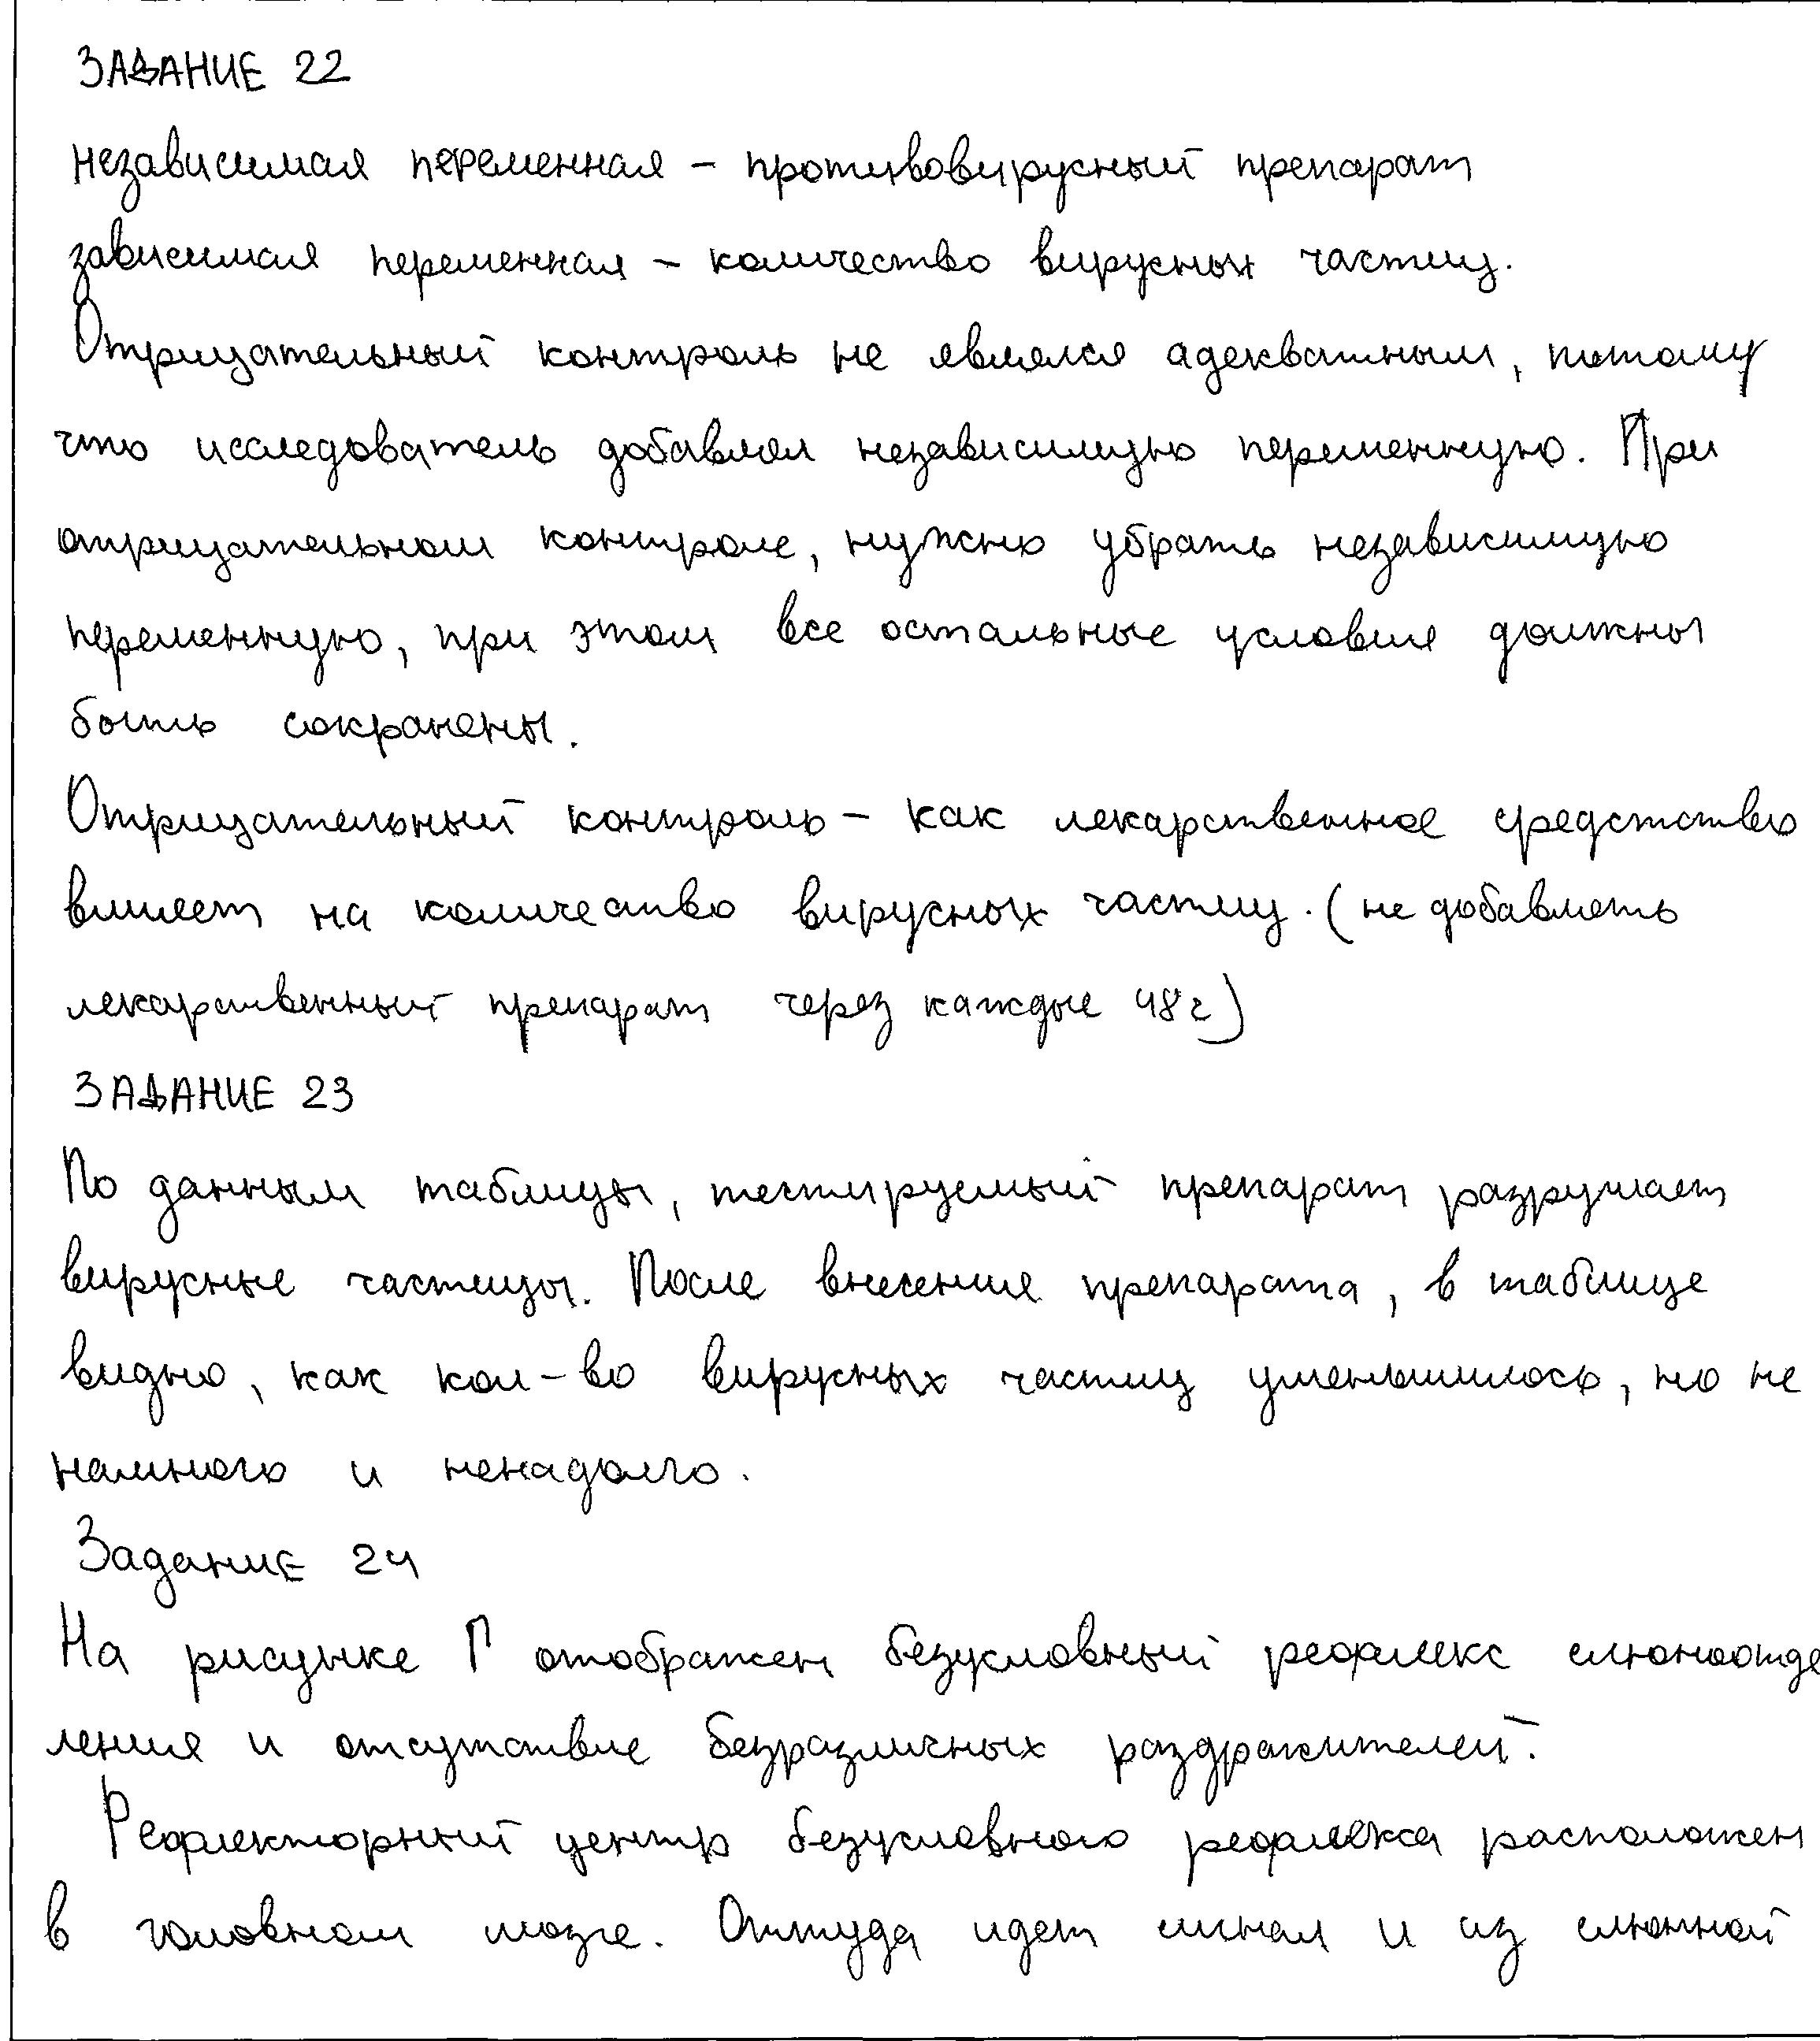 ЗАДАНИЕ 22
независимая переменная – противовирусный препарат
зависимая переменная – количество вирусных частиц.
Отрицательный контроль не являлся адекватным, потому
что исследователь добавлял независимую переменную. При
отрицательном контроле, нужно убрать независимую
переменную, при этом все остальные условия должны
быть сохранены.
Отрицательный контроль – как лекарственное средство
влияет на количество вирусных частиц. (не добавлять
лекарственный препарат через каждые 48 г)
ЗАДАНИЕ 23
По данным таблицы, тестируемый препарат разрушает
вирусные частицы. После внесения препарата, в таблице
видно, как кол-во вирусных частиц уменьшилось, но не
намного и ненадолго.
Задание 24
На рисунке Г отображен безусловный рефлекс слюноотде
ления и отсутствие безразличных раздражителей.
Рефлекторный центр безусловного рефлекса расположен
в головном мозге. Оттуда идет сигнал и из слюнной